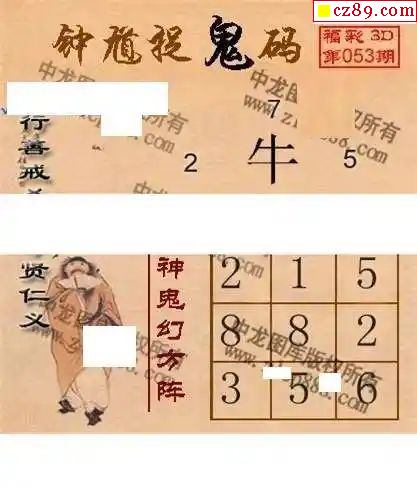 cz89.com
钟馗捉鬼码
福彩3D
第053期
行善戒
7
2 牛 5
贤仁义
神鬼幻方阵
2 1 5
8 8 2
3 5 6
中龙图库版权所有